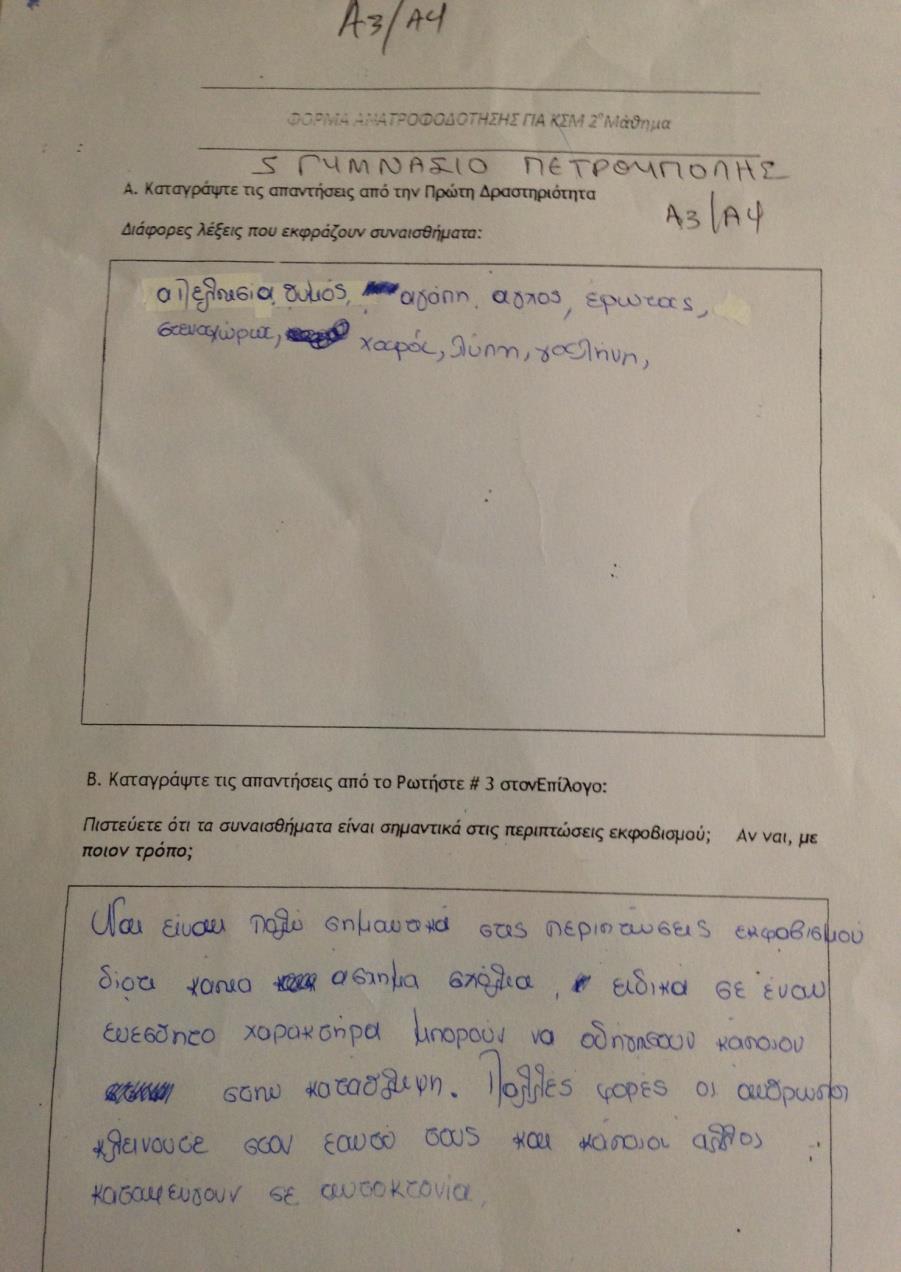 Α3/Α4
ΦΟΡΜΑ ΑΝΑΤΡΟΦΟΔΟΤΗΣΗΣ ΓΙΑ ΚΣΜ 2ο Μάθημα
5 ΓΥΜΝΑΣΙΟ ΠΕΤΡΟΥΠΟΛΗΣ
Α. Καταγράψτε τις απαντήσεις από την Πρώτη Δραστηριότητα
Α3/Α4
Διάφορες λέξεις που εκφράζουν συναισθήματα:
απελπισία, θυμός, αγάπη, αγχος, έρωτας,
στεναχώρια, χαράς, λύπη, γαλήνη,
Β. Καταγράψτε τις απαντήσεις από το Ρωτήστε # 3 στονΕπίλογο:
Πιστεύετε ότι τα συναισθήματα είναι σημαντικά στις περιπτώσεις εκφοβισμού; Αν ναι, με
ποιον τρόπο;
Ναι είναι πολύ σημαντικά στις περιπτώσεις εκφοβισμού
διοτι καπια ασχημα σχόλια, ειδικά σε έναν
ευεσθητο χαρακτήρα μπορούν να οδηγησουν καποιον
στην καταθλιψη. Πολλές φορές οι ανθρωποι
κλεινουσε στον εαυτό τους και κάποιοι αλλοι
καταφευγουν σε αυτοκτονία.